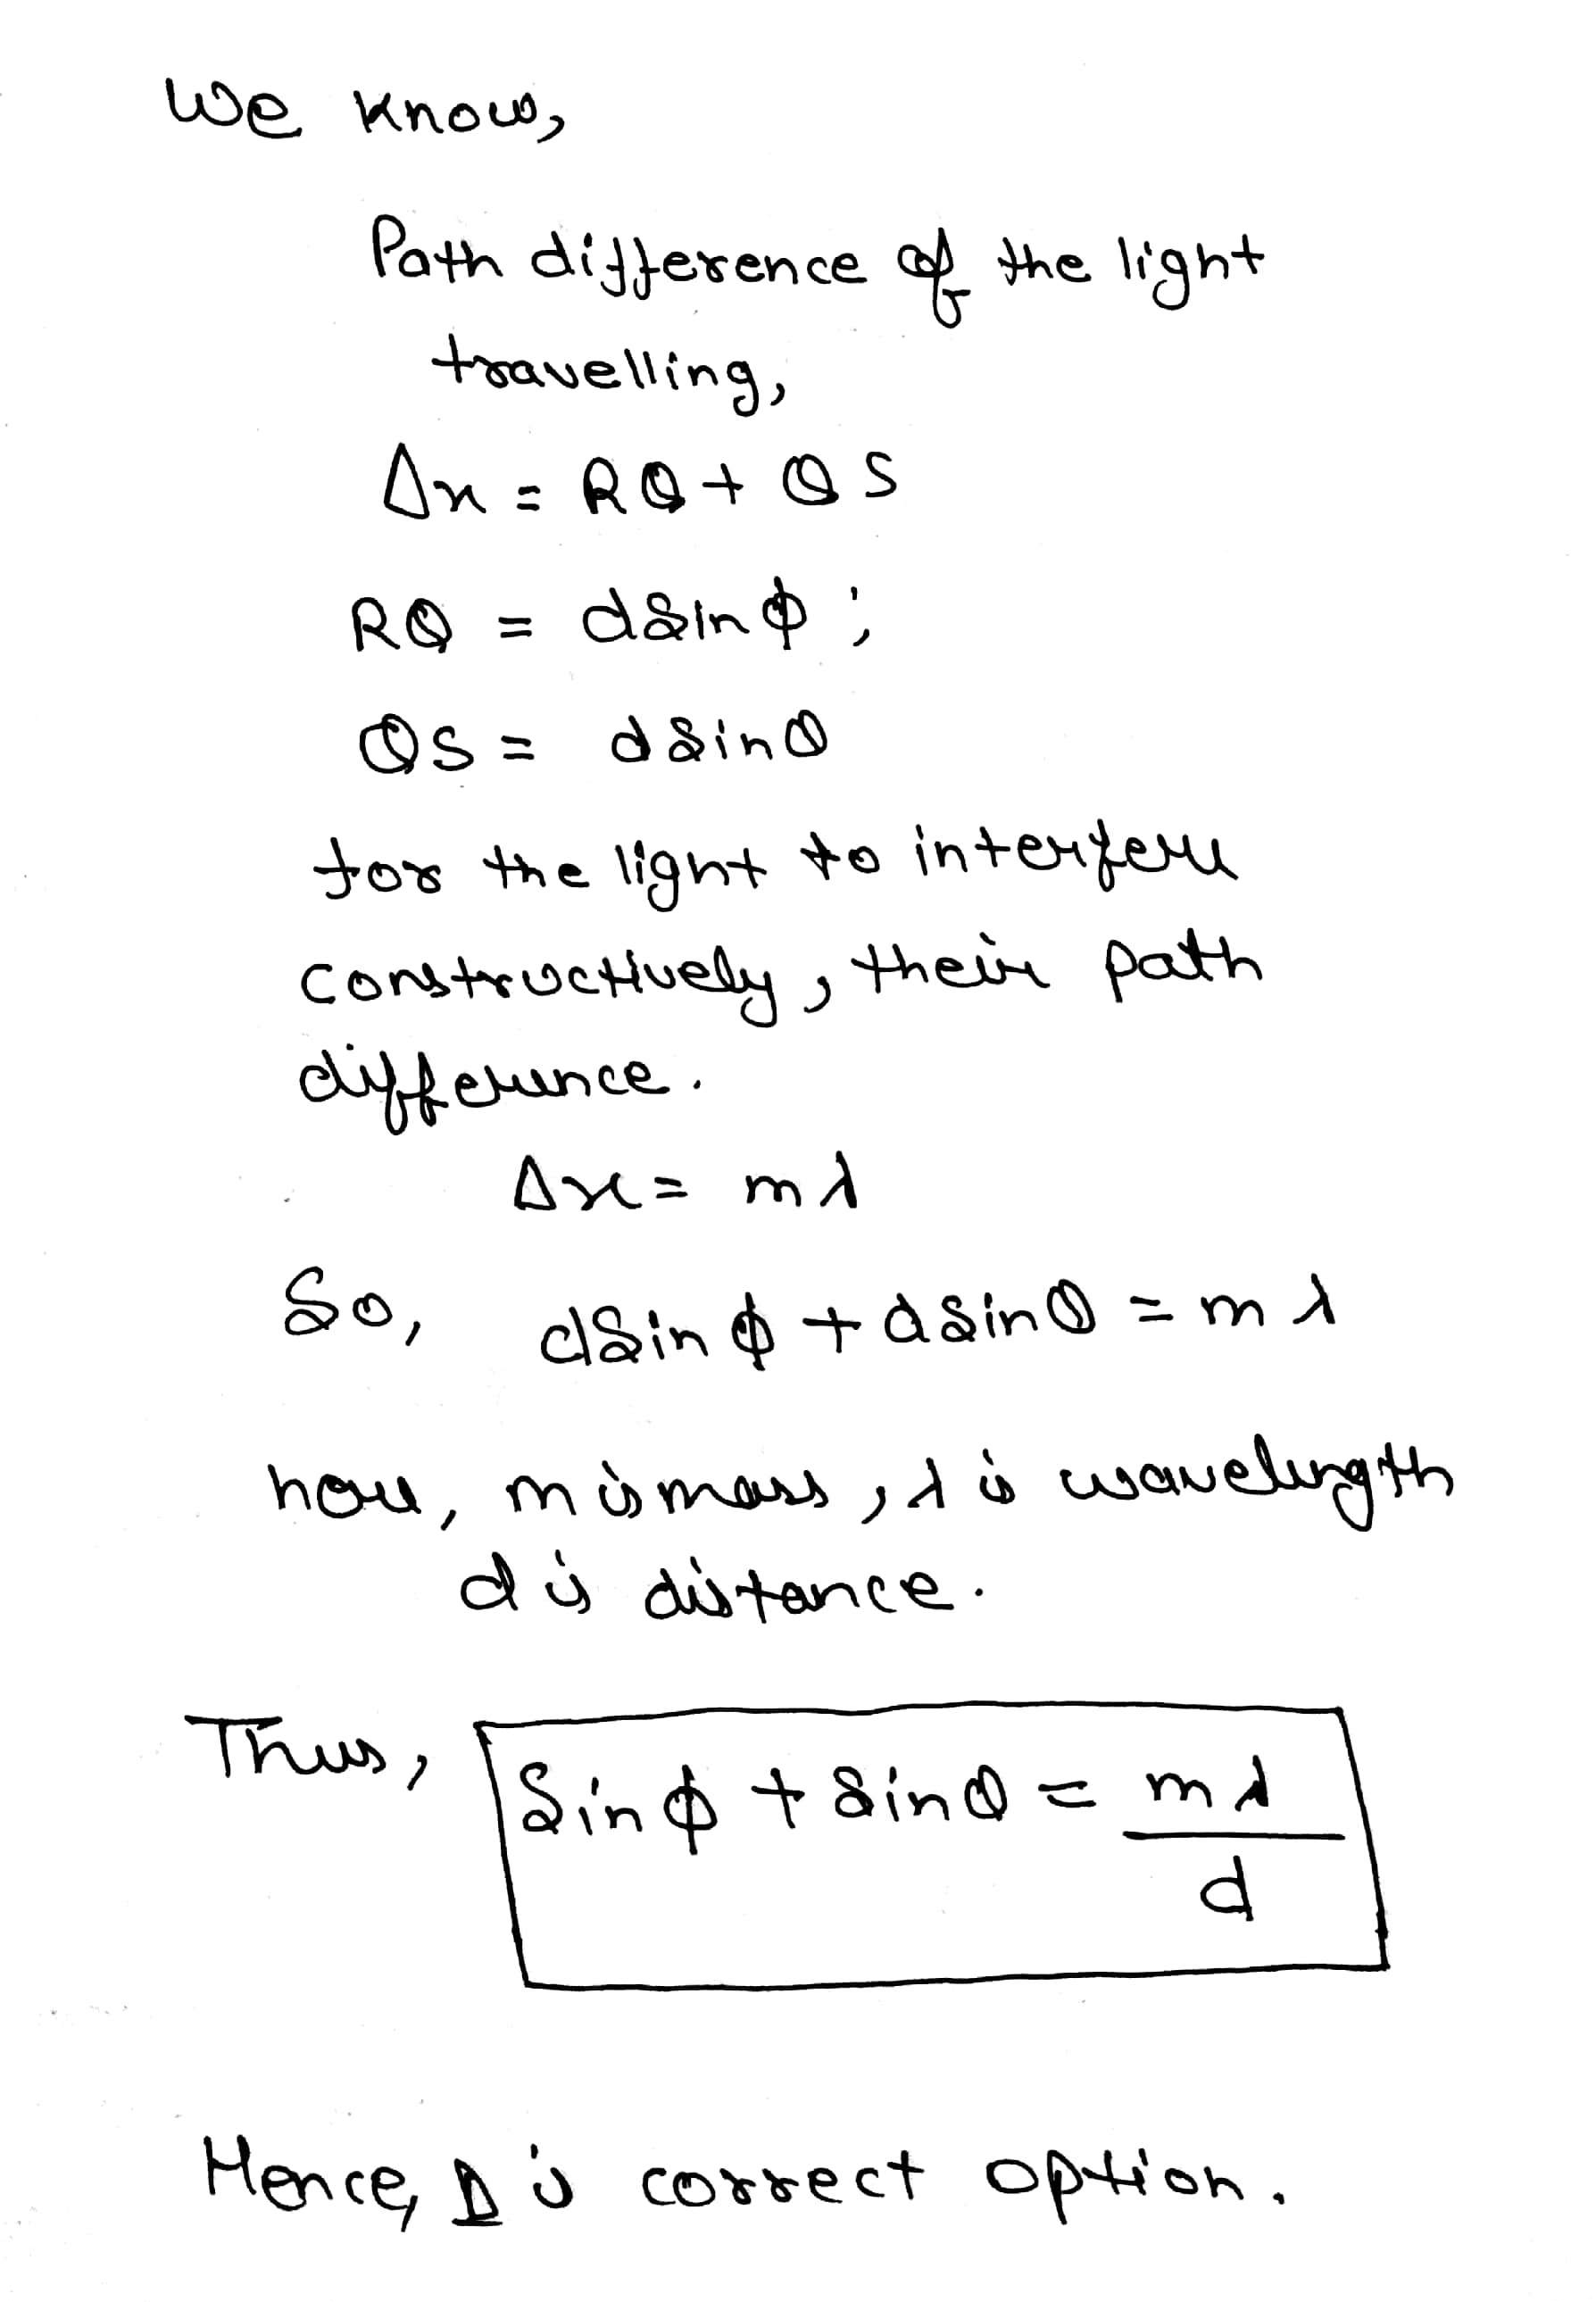 We know,
Path difference of the light
travelling,
Δx = RQ + QS
RQ = dsinϕ ;
QS = dsinθ
for the light to interfere
constructively, their path
difference.
Δx = mλ
So, dsinϕ + dsinθ = mλ
here, m is mass, λ is wavelength
d is distance.
Thus, Sinϕ + sinθ = mλ
d
Hence, D is correct option.